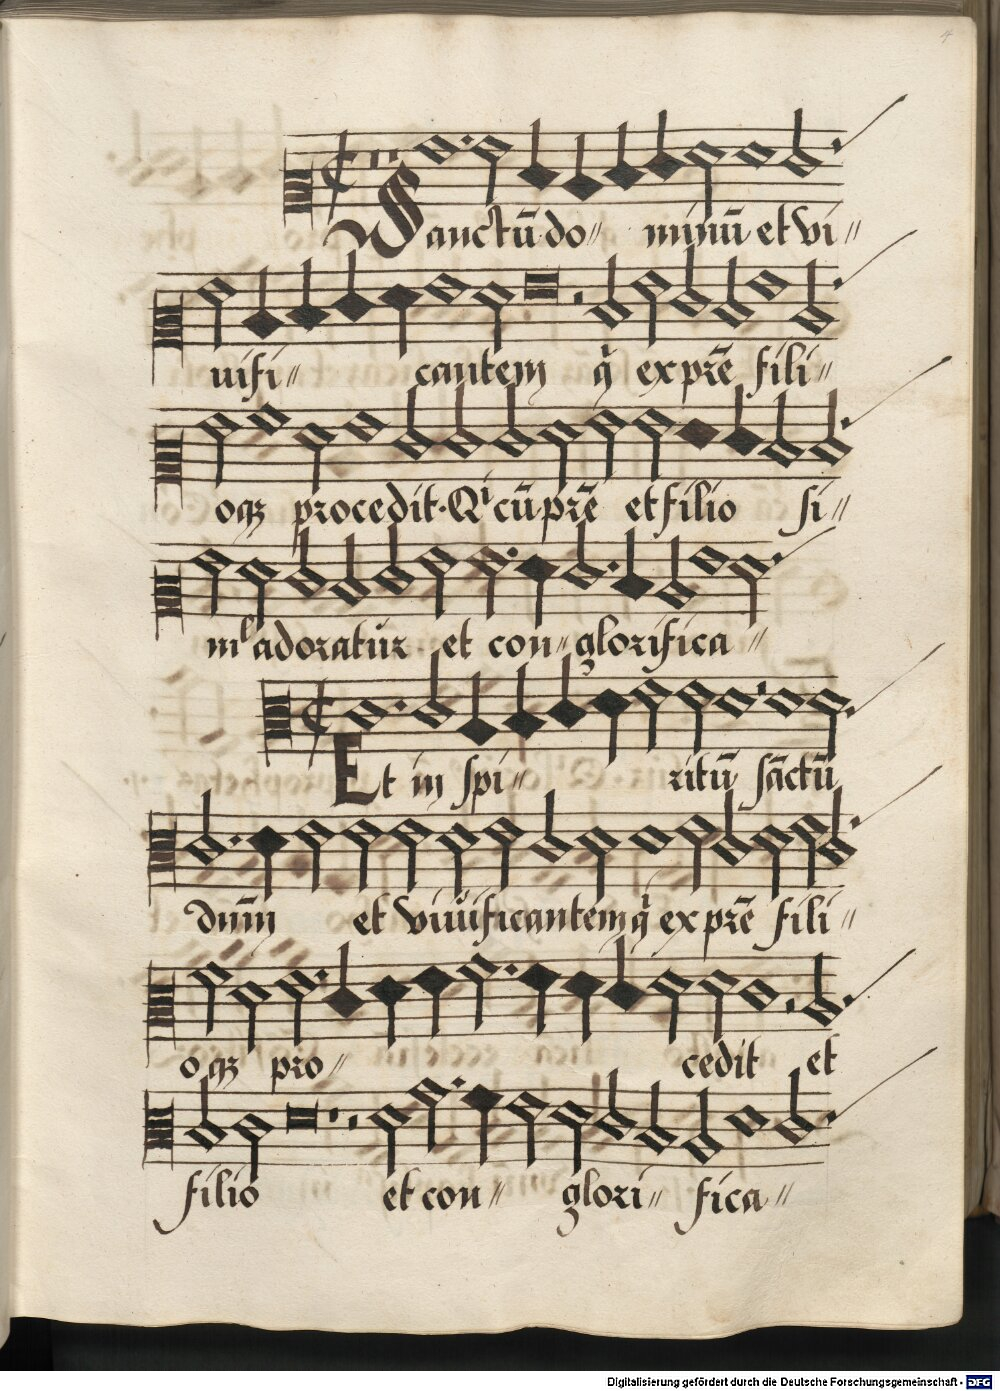 4
Sanctū do〃 minū et vi〃
uifi〃 cantem q̇ ex pr̄e fili〃
oqz procedit. Qi cū pr̄e et filio si〃
ml adoratur et con〃 glorifica〃
Et in spi〃 ritū sāctū
dn̄m et vivificantem q̇ ex pr̄e fili〃
oqz pro〃 cedit et
filio et con〃 glori〃 fica〃
Digitalisierung gefördert durch die Deutsche Forschungsgemeinschaft - DFG